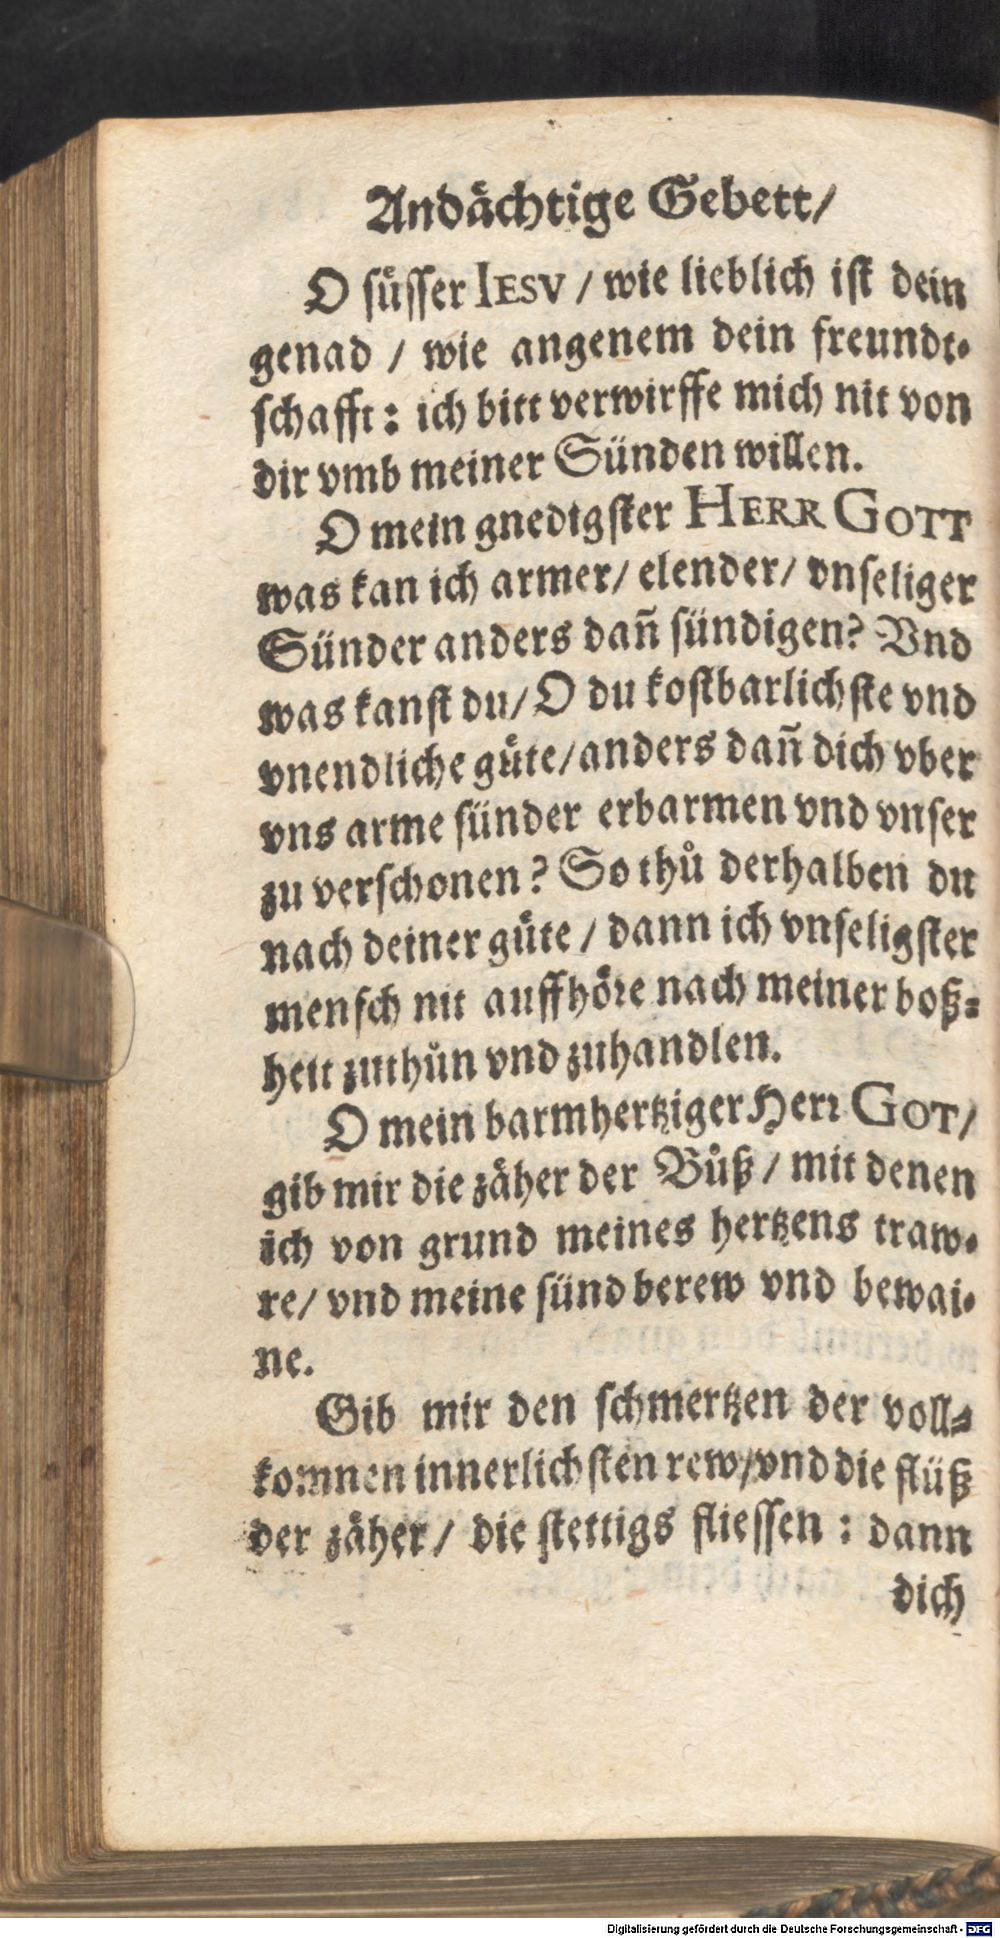 Andaͤchtige Gebett/
O suͤsser IESV / wie lieblich ist dein
genad / wie angenem dein freundt-
schafft: ich bitt verwirffe mich nit von
dir vmb meiner Sünden willen.
O mein gnedigster HERR GOTT
was kan ich armer/ elender/ vnseliger
Sünder anders dañ sündigen? Vnd
was kanst du/ O du kostbarlichste vnd
vnendliche guͤte/ anders dañ dich vber
vns arme sünder erbarmen vnd vnser
zu verschonen? So thuͦ derhalben du
nach deiner guͤte / dann ich vnseligster
mensch nit auffhoͤre nach meiner boß-
heit zuthuͦn vnd zuhandlen.
O mein barmhertziger Herr GOT/
gib mir die zaͤher der Buͦß / mit denen
ich von grund meines hertzens traw-
re/ vnd meine sünd berew vnd bewai-
ne.
Gib mir den schmertzen der voll-
komnen innerlichsten rew/ vnd die flüß
der zaͤher/ die stettigs fliessen : dann
dich
Digitalisierung gefördert durch die Deutsche Forschungsgemeinschaft - DFG